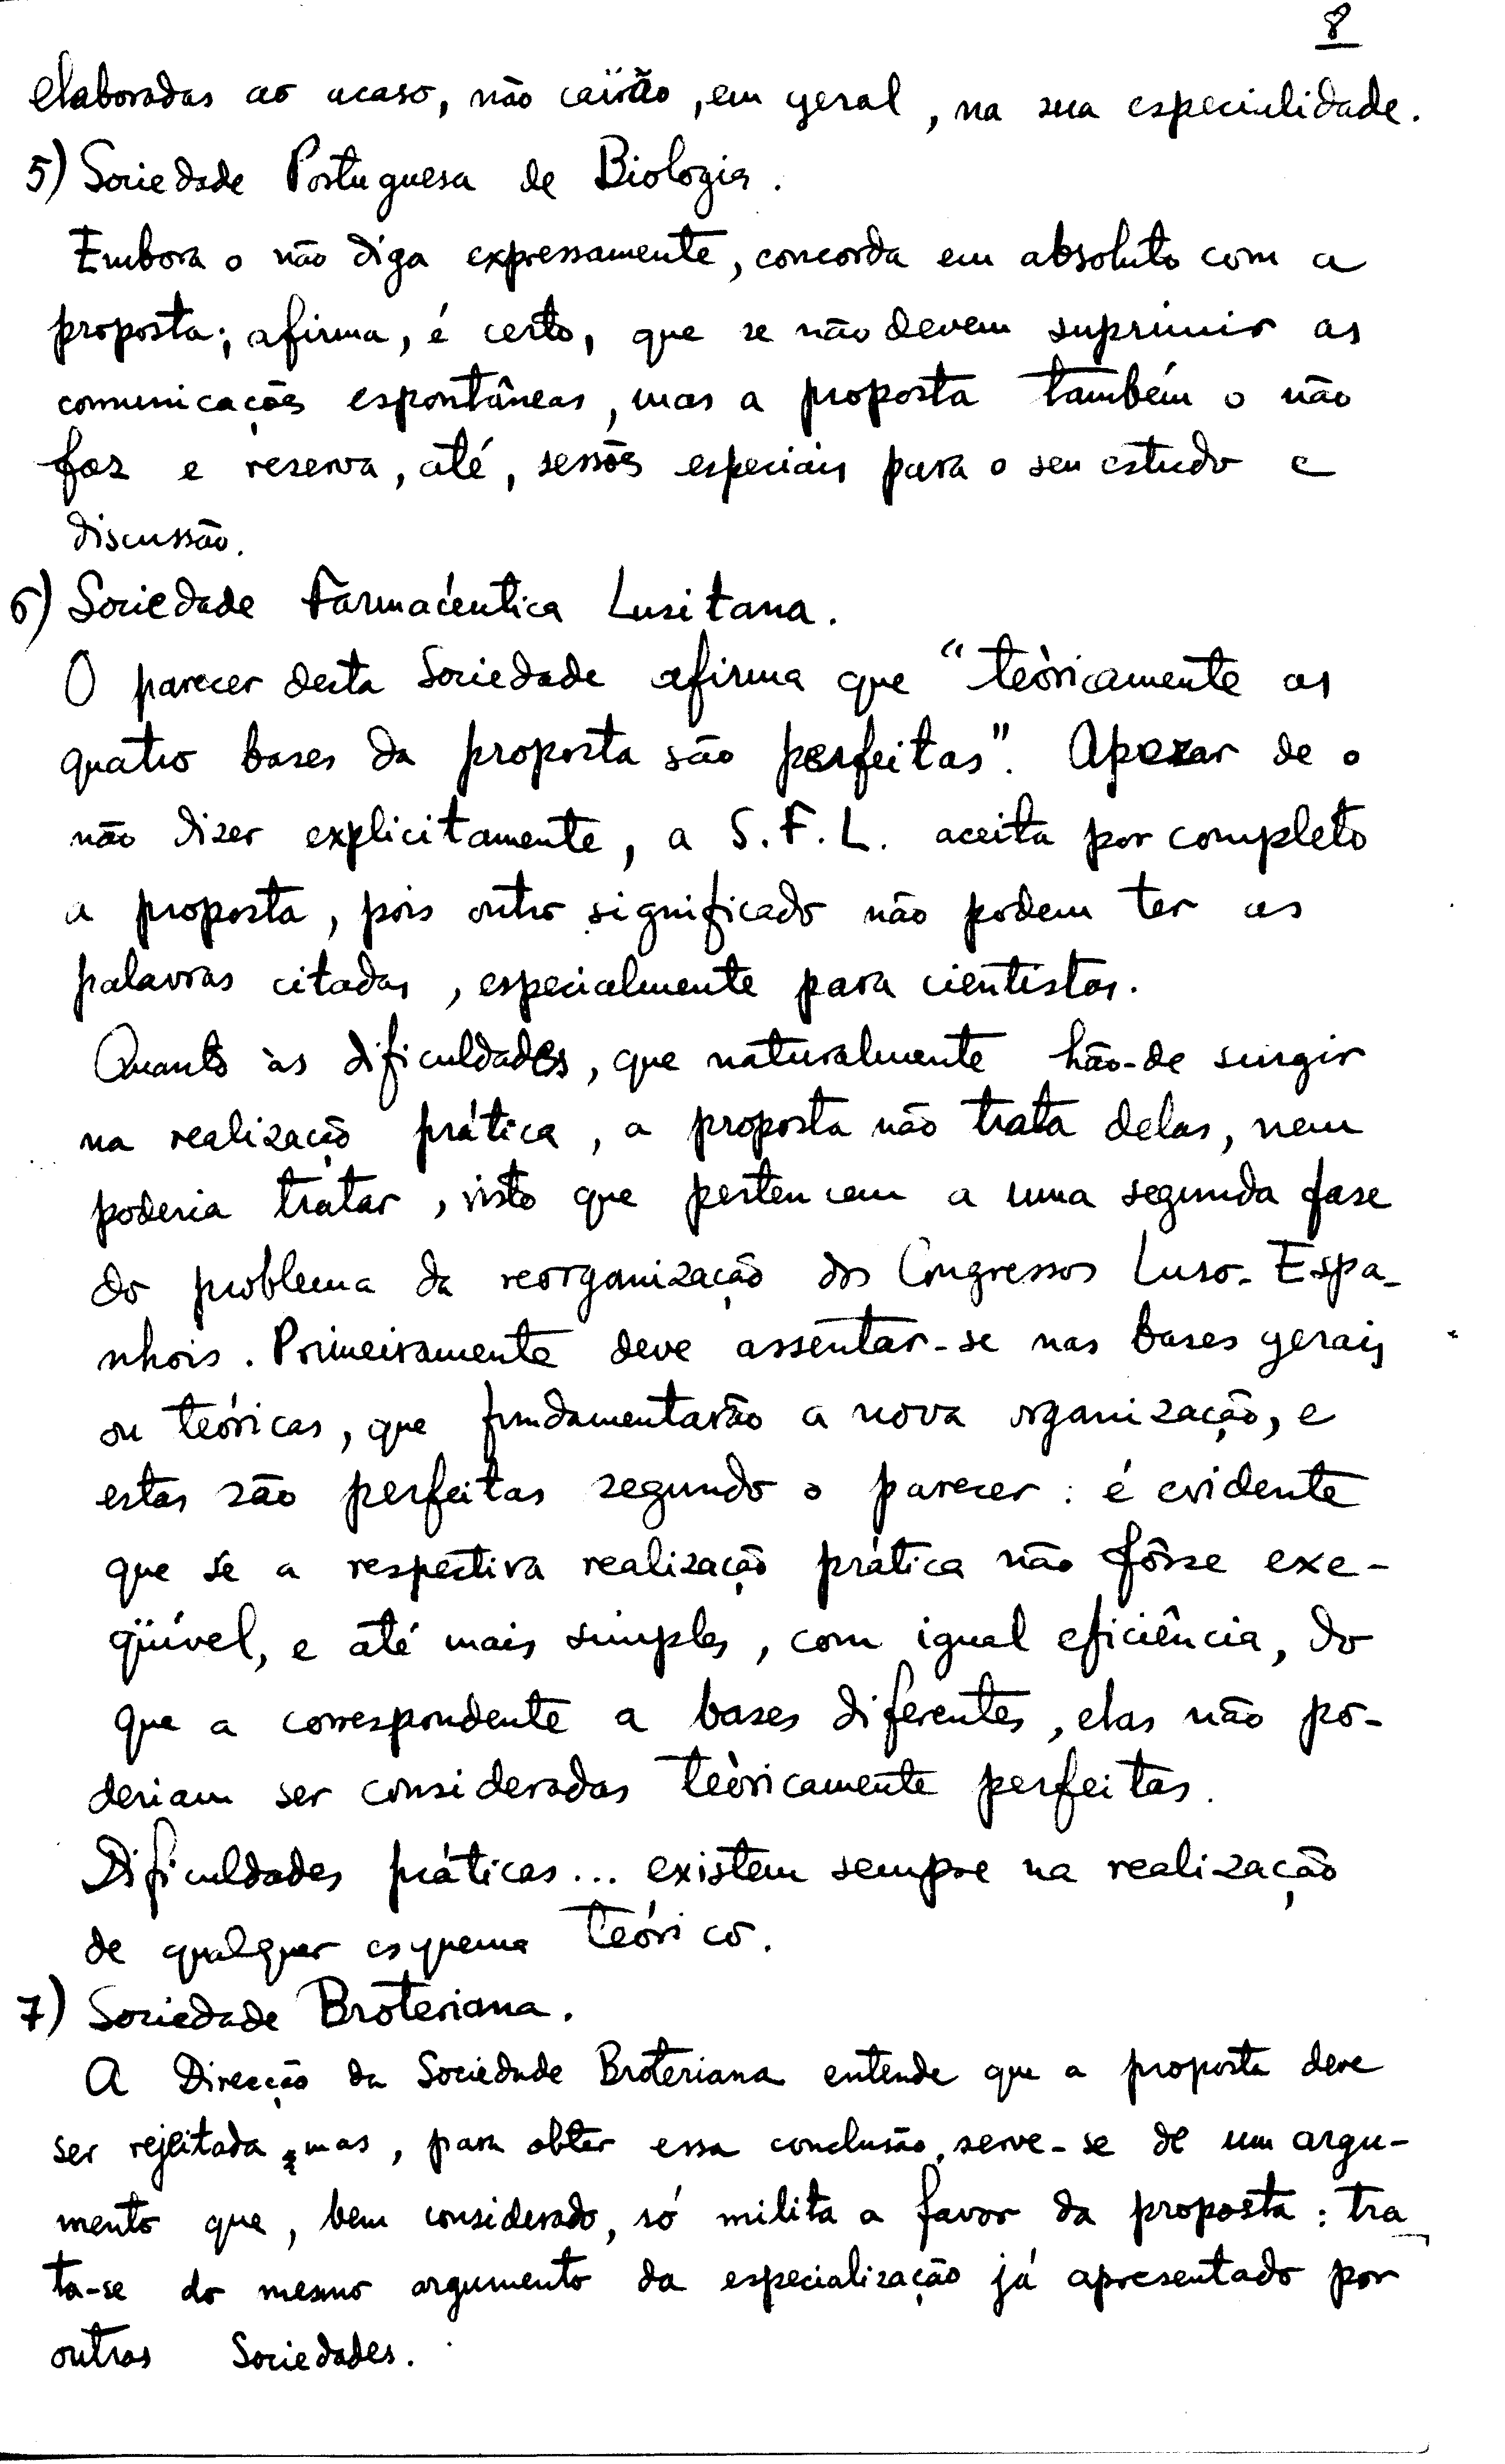 8
elaboradas ao acaso, não caïrão, em geral, na sua especialidade.
5) Sociedade Portuguesa de Biologia.
Embora o não diga expressamente, concorda em absoluto com a
proposta; afirma, é certo, que se não devem suprimir as
comunicações espontâneas, mas a proposta também o não
faz e reserva, até, sessões especiais para o seu estudo e
discussão.
6) Sociedade Farmacêutica Lusitana.
O parecer desta Sociedade afirma que "teòricamente as
quatro bases da proposta são perfeitas". Apezar de o
não dizer explicitamente, a S.F.L. aceita por completo
a proposta, pois outro significado não podem ter as
palavras citadas, especialmente para cientistas.
Quanto às dificuldades, que naturalmente hão-de surgir
na realização prática, a proposta não trata delas, nem
poderia tratar, visto que pertencem a uma segunda fase
do problema da reorganização dos Congressos Luso-Espa-
nhois. Primeiramente deve assentar-se nas bases gerais
ou teóricas, que fundamentarão a nova organização, e
estas são perfeitas segundo o parecer: é evidente
que se a respectiva realização prática não fôsse exe-
qüível, e até mais simples, com igual eficiência, do
que a correspondente a bases diferentes, elas não po-
deriam ser consideradas teòricamente perfeitas.
Dificuldades práticas... existem sempre na realização
de qualquer esquema teórico.
7) Sociedade Broteriana.
A Direcção da Sociedade Broteriana entende que a proposta deve
ser rejeitada, mas, para obter essa conclusão, serve-se de um argu-
mento que, bem considerado, só milita a favor da proposta: tra
ta-se do mesmo argumento da especialização já apresentado por
outras Sociedades.